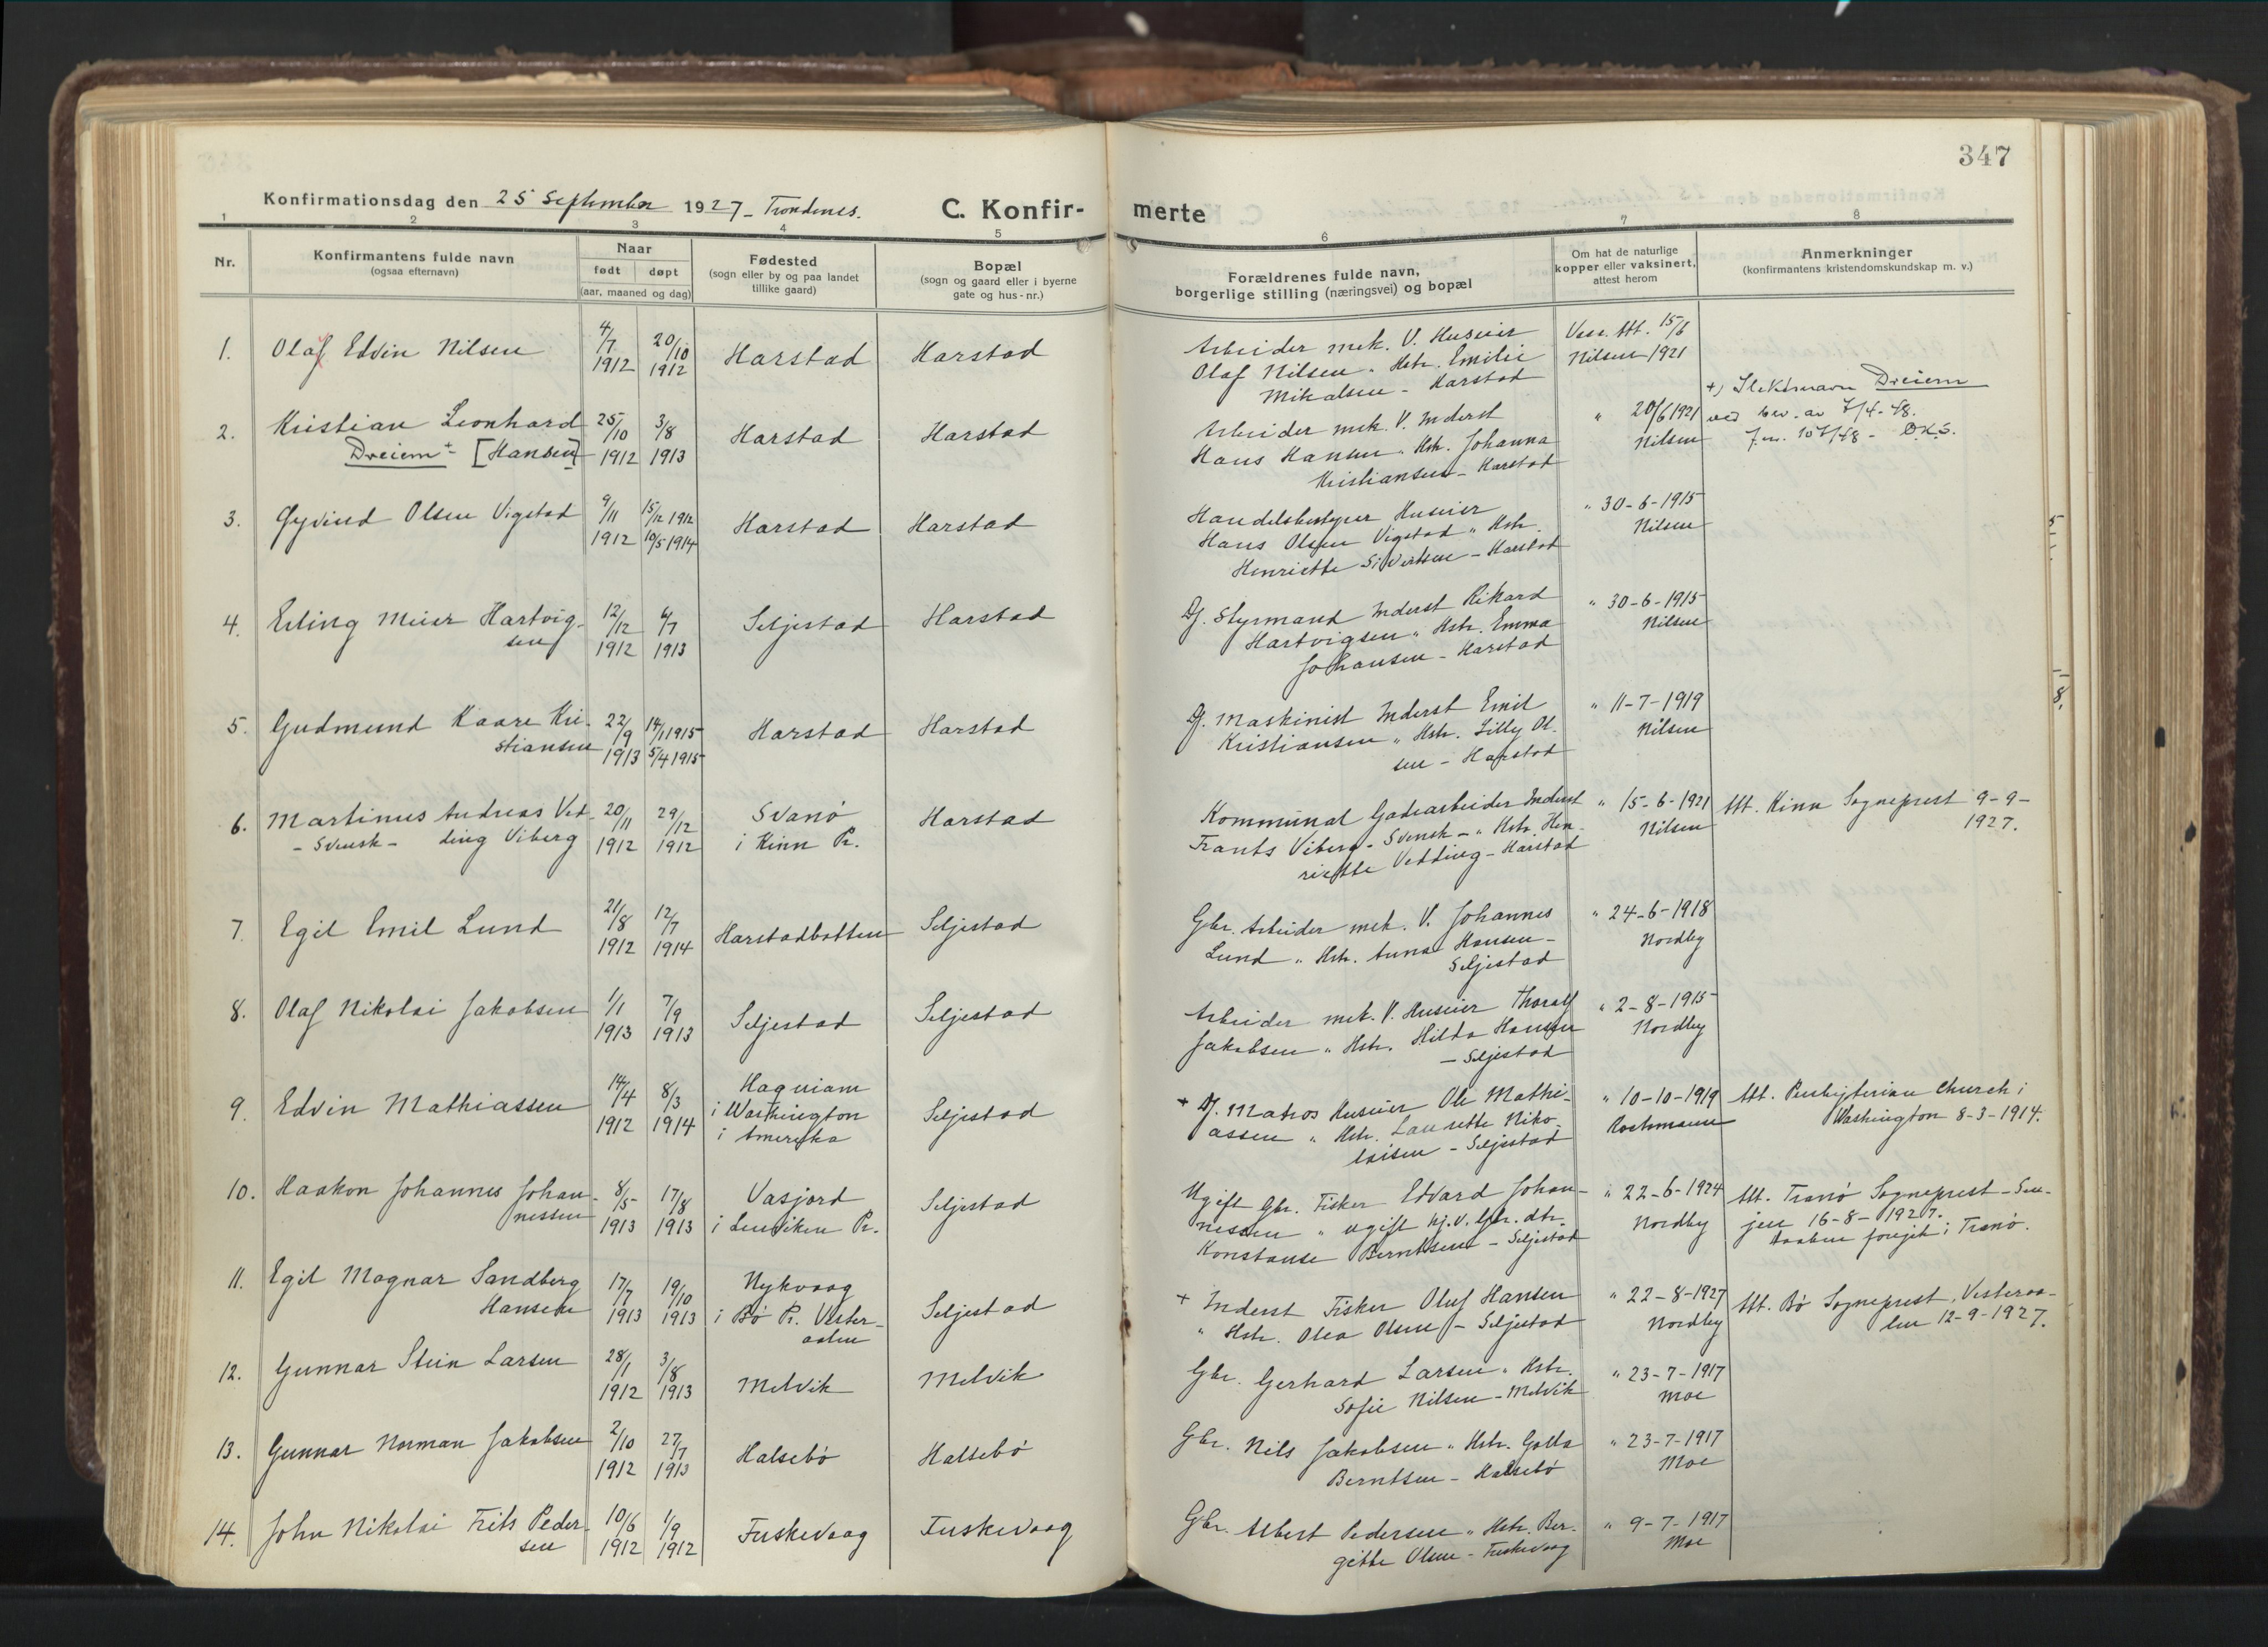 347
Konfirmationsdag den 25 September 1927 - Trondenes.
C. Konfir-
merte
1 2 3 4 5 6 7 8
Nr.
Konfirmantens fulde navn
(ogsaa efternavn)
Naar
født døpt
(aar, maaned og dag)
Fødested
(sogn eller by og paa landet
tillike gaard)
Bopæl
(sogn og gaard eller i byerne
gate og hus-nr.)
Forældrenes fulde navn,
borgerlige stilling (næringsvei) og bopæl
Om hat de naturlige
kopper eller vaksinert,
attest herom
Anmerkninger
(konfirmantens kristendomskundskap m. v.)
1. Olaf Edvin Nilsen
4/7 1912
20/10 1912
Harstad
Harstad
Arbeider mek. V. Huseier
Olaf Nilsen " Hstr. Emilie
Mikalsen - Harstad
Vacc. Att. 15/6
Nilsen 1921
2. Kristian Leonhard
Dreiem + [Hansen]
25/10 1912
3/8 1913
Harstad
Harstad
Arbeider mek. V. Inderst
Hans Hansen " Hstr. Johanna
Kristiansen - Harstad
" 20/6 1921
Nilsen
+) Slektsnavn Dreiem
ved bev. av 7/4-48.
J.nr. 107/48 - O.K.S.
3. Øyvind Olsen Vigstad
9/11 1912
15/12 1912
10/5 1914
Harstad
Harstad
Handelsbestyrer Huseier
Hans Olsen Vigstad " Hstr.
Henriette Sivertsen - Harstad
" 30-6-1915
Nilsen
4. Erling Meier Hartvig-
sen
12/12 1912
6/7 1913
Seljestad
Harstad
Df. Styrmand Inderst Rikard
Hartvigsen " Hstr. Emma
Johansen - Harstad
" 30-6-1915
Nilsen
5. Gudmund Kaare Kri-
stiansen
22/9 1913
14/1 1915
5/4 1915
Harstad
Harstad
Df. Maskinist Inderst Emil
Kristiansen " Hstr. Lilly Ol-
sen - Harstad
" 11-7-1919
Nilsen
6. Martinus Andreas Ved-
- Svensk - ding Viberg
20/11 1912
29/12 1912
Svanø
i Kinn Pr.
Harstad
Kommunal Gadearbeider Inderst
Frants Viberg - Svensk - " Hstr. Hen-
riette Vedding - Harstad
" 15-6-1921
Nilsen
Att. Kinn Sogneprest 9-9-
1927.
7. Egil Emil Lund
21/8 1912
12/7 1914
Harstadbotten
Seljestad
Gbr. Arbeider mek. V. Johannes
Lund " Hstr. Anna Hansen -
Seljestad
" 24-6-1918
Nordby
8. Olaf Nikolai Jakobsen
1/1 1913
7/9 1913
Seljestad
Seljestad
Arbeider mek. V. Huseier Thoralf
Jakobsen " Hstr. Hilda Hansen
- Seljestad
" 2-8-1915
Nordby
9. Edvin Mathiassen
14/4 1912
8/3 1914
Haquiam
i Washington
i Amerika
Seljestad
+ Df. Matros Huseier Ole Mathi-
assen " Hstr. Laurette Niko-
laisen - Seljestad
" 10-10-1919
Att. Presbyterian Church i
Washington 8-3-1914.
10. Haakon Johannes Johan-
nessen
8/5 1913
17/8 1913
Vasjord
i Lenviken Pr.
Seljestad
Ugift Gbr. Fisker Edvard Johan-
nessen " ugift hj.v. Gbr. dtr.
Konstanse Berntsen - Seljestad
" 22-6-1924
Nordby
Att. Tranø Sogneprest - Sen-
jen 16-8-1927.
Daaben foregik i Tranø.
11. Egil Magnar Sandberg
Hansen
17/7 1913
19/10 1913
Nykvaag
i Bø Pr. Vester-
aalen
Seljestad
+ Inderst Fisker Oluf Hansen
" Hstr. Olea Olsen - Seljestad
" 22-8-1927
Nordby
Att. Bø Sogneprest, Vesteraa-
len 12-9-1927.
12. Gunnar Stein Larsen
28/1 1912
3/8 1913
Melvik
Melvik
Gbr. Gerhard Larsen " Hstr.
Sofie Nilsen - Melvik
" 23-7-1917
Moe
13. Gunnar Norman Jakobsen
2/10 1912
27/7 1913
Halsebø
Halsebø
Gbr. Nils Jakobsen " Hstr. Golla
Berntsen - Halsebø
" 23-7-1917
Moe
14. John Nikolai Frits Peder-
sen
10/6 1912
1/9 1912
Fuskevaag
Fuskevaag
Gbr. Albert Pedersen " Hstr. Ber-
gitte Olsen - Fuskevaag
" 9-7-1917
Moe